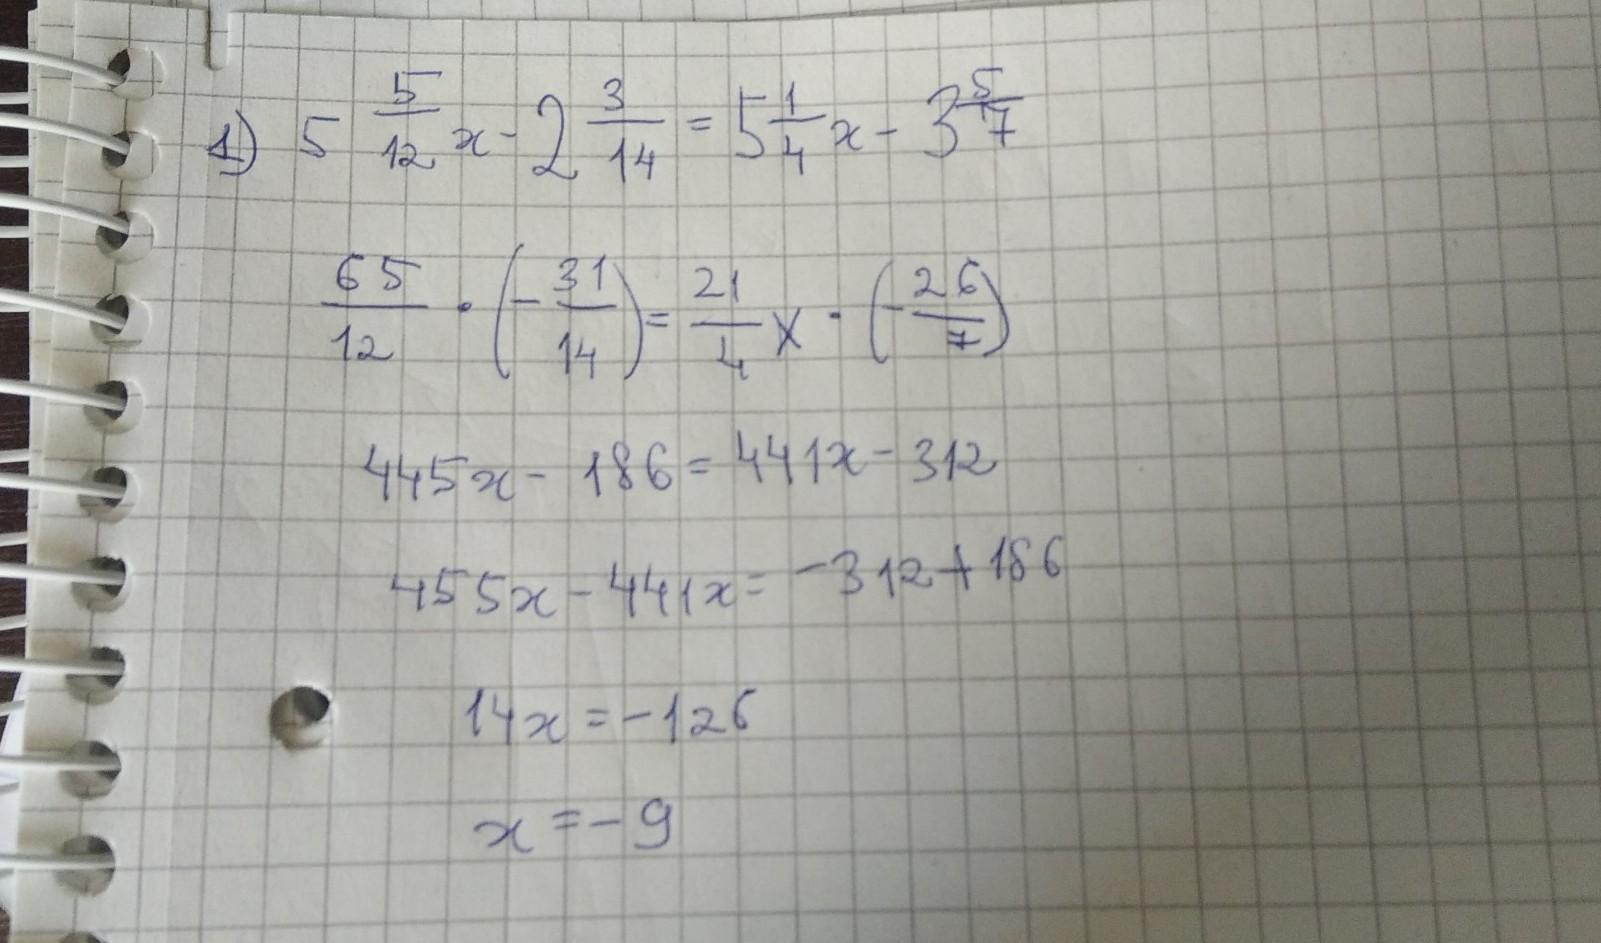 1) 5 5/12 x - 2 3/14 = 5 1/4 x - 3 5/7
65/12 · (- 31/14) = 21/4 x · (- 26/7)
445x - 186 = 441x - 312
455x - 441x = -312 + 186
14x = -126
x = -9